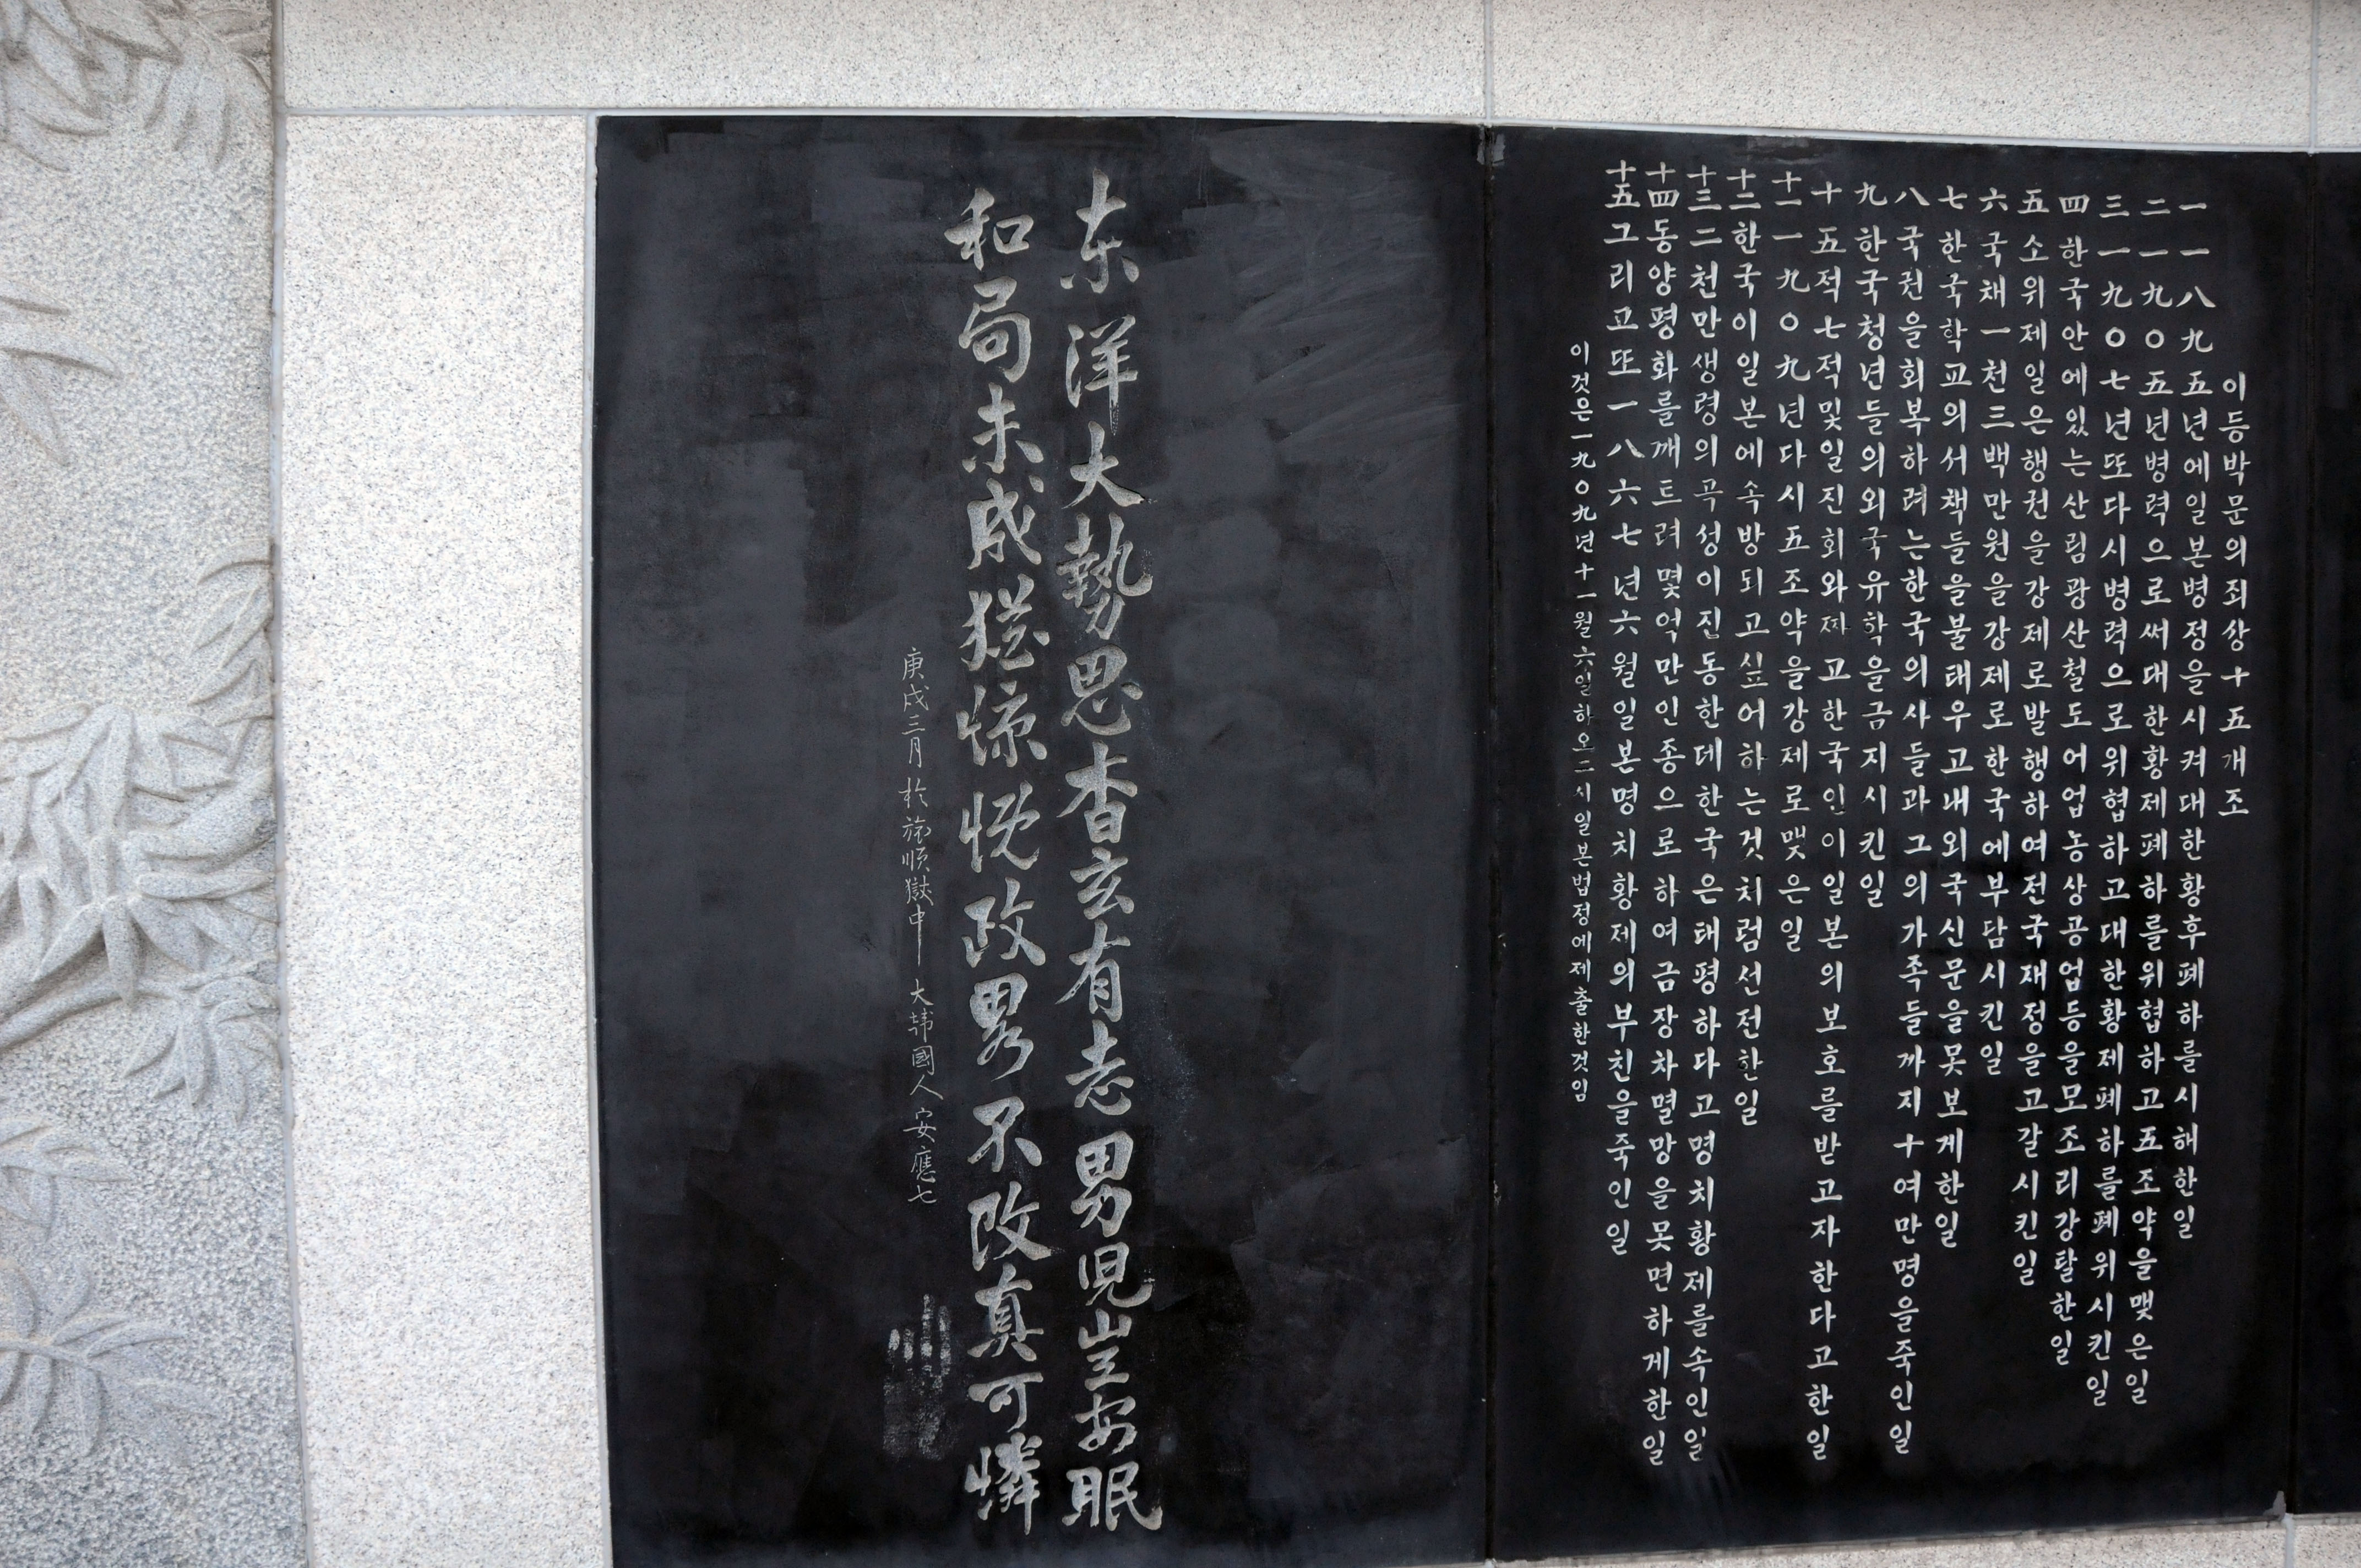 이등박문의죄상十五개조
一 一八九五년에일본병정을시켜대한황후폐하를시해한일
二 一九〇五년병력으로써대한황제폐하를위협하고五조약을맺은일
三 一九〇七년또다시병력으로위협하고대한황제폐하를폐위시킨일
四 한국안에있는산림광산철도어업농상공업등을모조리강탈한일
五 소위제일은행권을강제로발행하여전국재정을고갈시킨일
六 국채一천三백만원을강제로한국에부담시킨일
七 한국학교의서책들을불태우고내외국신문을못보게한일
八 국권을회복하려는한국의사들과그의가족들까지十여만명을죽인일
九 한국청년들의외국유학을금지시킨일
十 五적七적및일진회와짜고한국인이일본의보호를받고자한다고한일
十一 一九〇九년다시五조약을강제로맺은일
十二 한국이일본에속방되고싶어하는것처럼선전한일
十三 二천만생령의곡성이집동한데한국은태평하다고명치황제를속인일
十四 동양평화를깨트려몇억만인종으로하여금장차멸망을못면하게한일
十五 그리고또一八六七년六월일본명치황제의부친을죽인일
이것은一九〇九년十一월六일하오二시일본법정에제출한것임
东洋大勢思杳玄有志男児豈安眠
和局未成猶慷慨政畧不改真可憐
庚戌三月 於旅順獄中 大韓國人 安應七